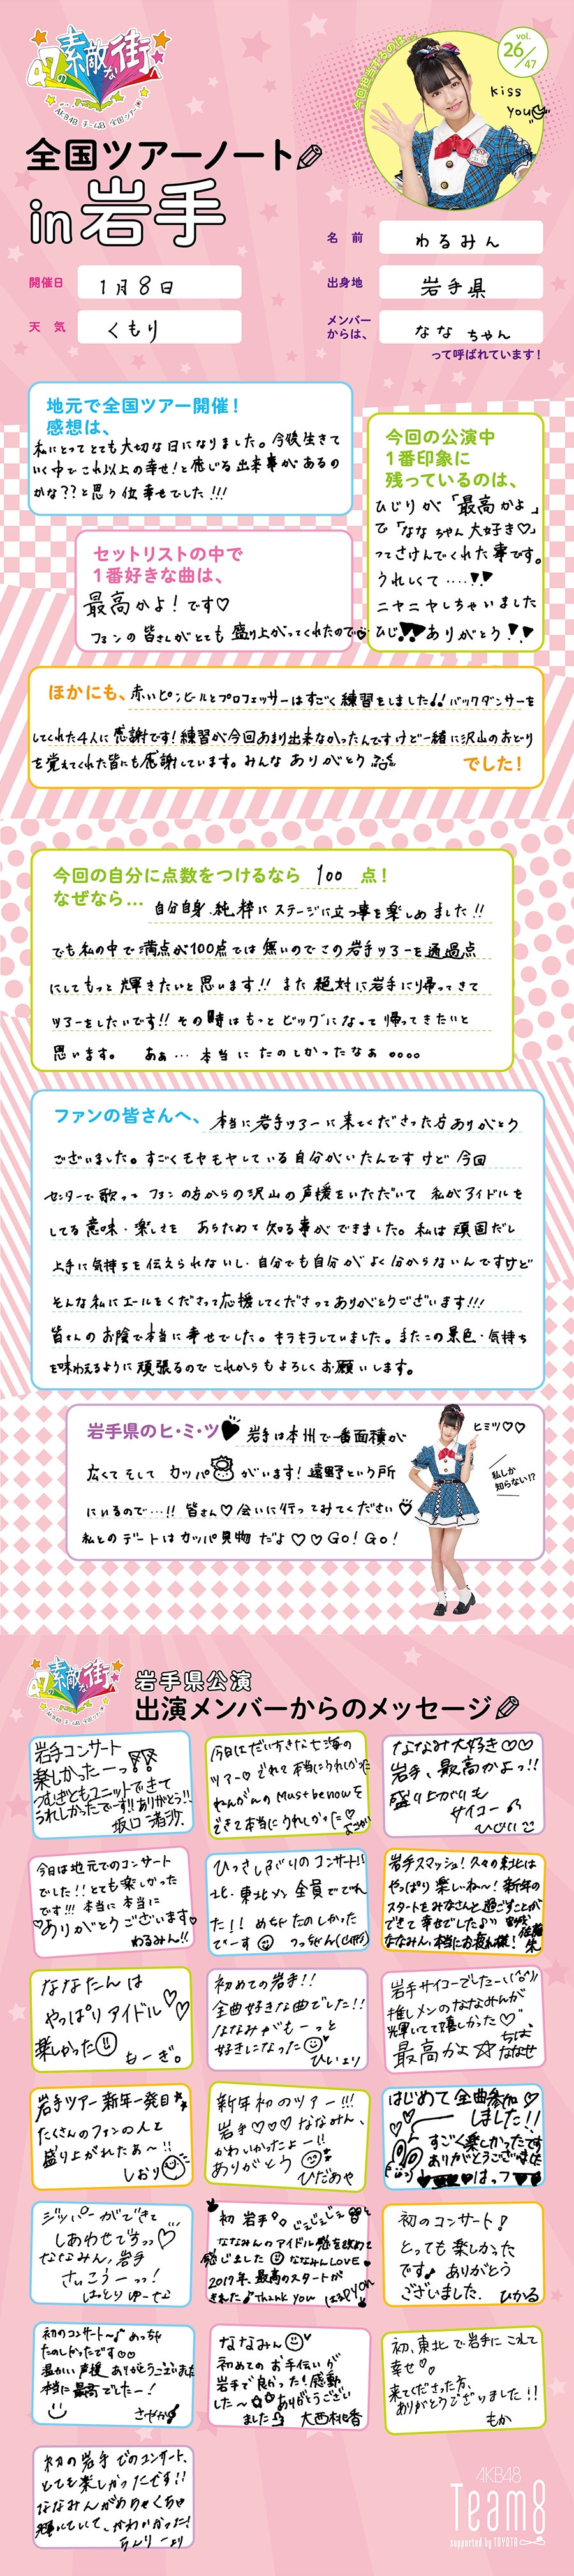 47の素敵な街へ
AKB48 チーム8 全国ツアー
今回担当するのは…
vol.
26/47
Kiss
You
全国ツアーノート
in 岩手
名 前 わるみん
開催日 1月8日
出身地 岩手県
天 気 くもり
メンバーからは、 なな ちゃん
って呼ばれています！
地元で全国ツアー開催！
感想は、
私にとってとても大切な日になりました。今後生きて
いく中でこれ以上の幸せ!と感じる出来事があるの
かな??と思う位幸せでした!!!
今回の公演中
1番印象に
残っているのは、
ひじりが「最高かよ」
で「なな ちゃん大好き♡」
ってさけんでくれた事です。
うれしくて ‥‥!!
ニヤニヤしちゃいました
ひじ!!ありがとう!!
セットリストの中で
1番好きな曲は、
最高かよ！です♡
ファンの皆さんがとても盛り上がってくれたので
ほかにも、赤いピンヒールとプロフェッサーはすごく練習をしました!!バックダンサーを
してくれた4人に感謝です!練習が今回あまり出来なかったんですけど一緒に沢山のおどり
を覚えてくれた皆にも感謝しています。みんな ありがとう
でした！
今回の自分に点数をつけるなら 100 点！
なぜなら… 自分自身、純粋にステージに立つ事を楽しめました!!
でも私の中で満点が100点では無いのでこの岩手ツアーを通過点
にしてもっと輝きたいと思います!! また絶対に岩手に帰ってきて
ツアーをしたいです!! その時はもっとビッグになって帰ってきたいと
思います。 あぁ… 本当に たのしかったなぁ
ファンの皆さんへ、本当に岩手ツアーに来てくださった方ありがとう
ございました。すごくモヤモヤしている自分がいたんですけど 今回
センターで歌って ファンの方からの沢山の声援をいただいて 私がアイドルを
してる意味・楽しさを あらためて知る事ができました。私は頑固だし
上手に気持ちを伝えられないし・自分でも自分がよく分からないんですけど
そんな私にエールをくださって応援してくださってありがとうございます!!!
皆さんのお陰で本当に幸せでした。キラキラしていました。またこの景色・気持ち
を味わえるように頑張るのでこれからもよろしくお願いします。
岩手県のヒ・ミ・ツ 岩手は本州で一番面積が
広くてそして カッパ がいます！遠野という所
にいるので…!! 皆さん♡会いに行ってみてください♡
私とのデートはカッパ見物だよ♡♡Go! Go!
ヒミツ♡♡
私しか
知らない!?
47の素敵な街へ
AKB48 チーム8 全国ツアー
岩手県公演
出演メンバーからのメッセージ
岩手コンサート
楽しかったーっ!!
つむぎともユニットできて
うれしかったでーす!!ありがとう!!
坂口渚沙
今日はだいすきな七海の
ツアー♡でれて本当にうれしかった
れんがんのMust be nowを
できて本当にうれしかった♡
よこがい
ななみ大好き♡♡
岩手、最高かよっ!!
盛り上がりも
サイコー
ひじりい
今日は地元でのコンサート
でした!!とても楽しかった
です!!! 本当に 本当に
♡ありがとうございます♡
わるみん!!
ひっさしぶりのコンサート!!
北・東北メン 全員ででれ
た!! めちゃ たのしかった
でーす
岩手スマッシュ！久々の東北は
やっぱり楽しいね〜！新年の
スタートをみなさんと過ごすことが
できて幸せでしたよ♪♪ 宮城 佐藤
ななみん、本当にお疲れ様！ 朱
ななたんは
やっぱりアイドル♡♡
楽しかった!!
もーぎ。
初めての岩手!!
全曲好きな曲でした!!
ななみがもーっと
好きになった
ひぃより
岩手サイコーでしたーい
推しメンのななみんが
輝いてて嬉しかった♡
最高かよ☆
ちば、
ななせ
岩手ツアー新年一発目
たくさんのファンの人と
盛り上がれたあ〜!!
しおり
新年初のツアー!!!
岩手♡♡♡ ななみん、
かわいかったよー!!
ありがとう
ひだあや
はじめて全曲参加♡
しました!!
すごく楽しかったです
ありがとうございました
ジッパーができて
しあわせですっっ♡
ななみん,岩手
さいこうーっっ！
初 岩手 じぇじぇじぇ
ななみんのアイドル感を改めて
感じました ななみんLOVE
2017年、最高のスタートが
きれた♪ Thank you はるpyon
初のコンサート！
とっても楽しかった
です♪ ありがとう
ございました。 ひかる
初のコンサート〜♪ めっちゃ
たのしかったです♡♡
温かい声援 ありがとうございました
本当に最高でしたー！
さやか
ななみん
初めてのお手伝いが
岩手で良かった！感動
した〜 ありがとうござい
ました 大西桃香
初、東北で岩手にこれて
幸せ♡
来てくださった方、
ありがとうございました!!
もか
初の岩手でのコンサート、
とても楽しかったです!!
ななみんがめちゃくちゃ
輝いていて、かわいかった!
AKB48
Team8
supported by TOYOTA